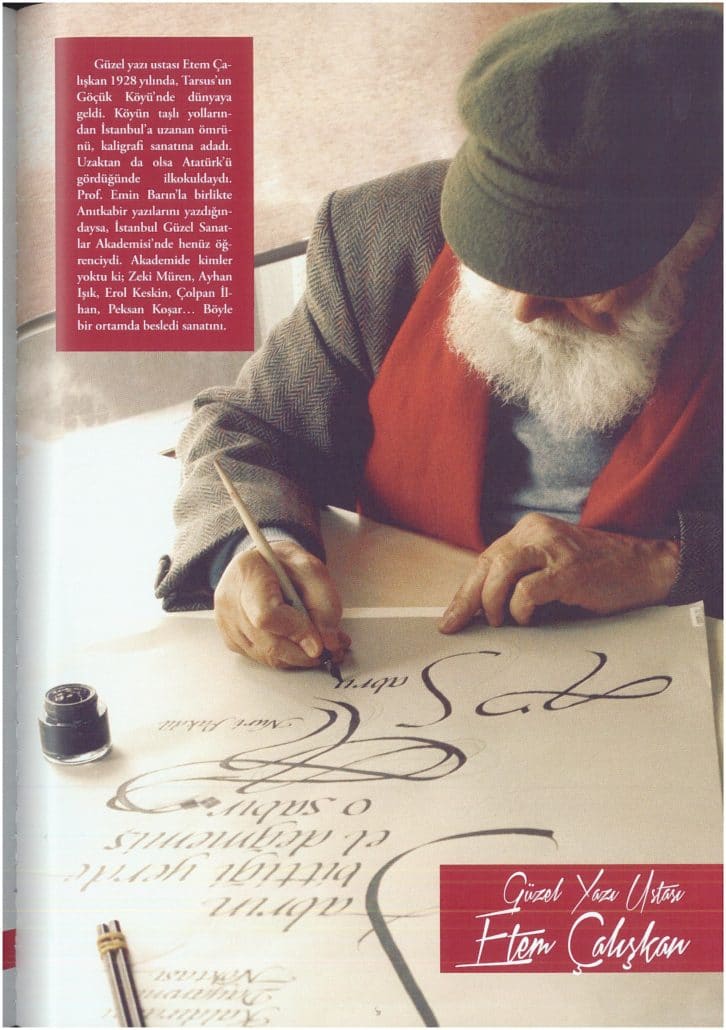 Güzel yazı ustası Etem Ça-
lışkan 1928 yılında, Tarsus'un
Göçük Köyü'nde dünyaya
geldi. Köyün taşlı yolların-
dan İstanbul'a uzanan ömrü-
nü, kaligrafi sanatına adadı.
Uzaktan da olsa Atatürk'ü
gördüğünde ilkokuldaydı.
Prof. Emin Barın'la birlikte
Anıtkabir yazılarını yazdığın-
daysa, İstanbul Güzel Sanat-
lar Akademisi'nde henüz öğ-
renciydi. Akademide kimler
yoktu ki; Zeki Müren, Ayhan
Işık, Erol Keskin, Çolpan İl-
han, Peksan Koşar… Böyle
bir ortamda besledi sanatını.
Sabrın
bittiği yerde
el değmemiş
o sabır
Nuri Pakdil
Güzel Yazı Ustası
Etem Çalışkan